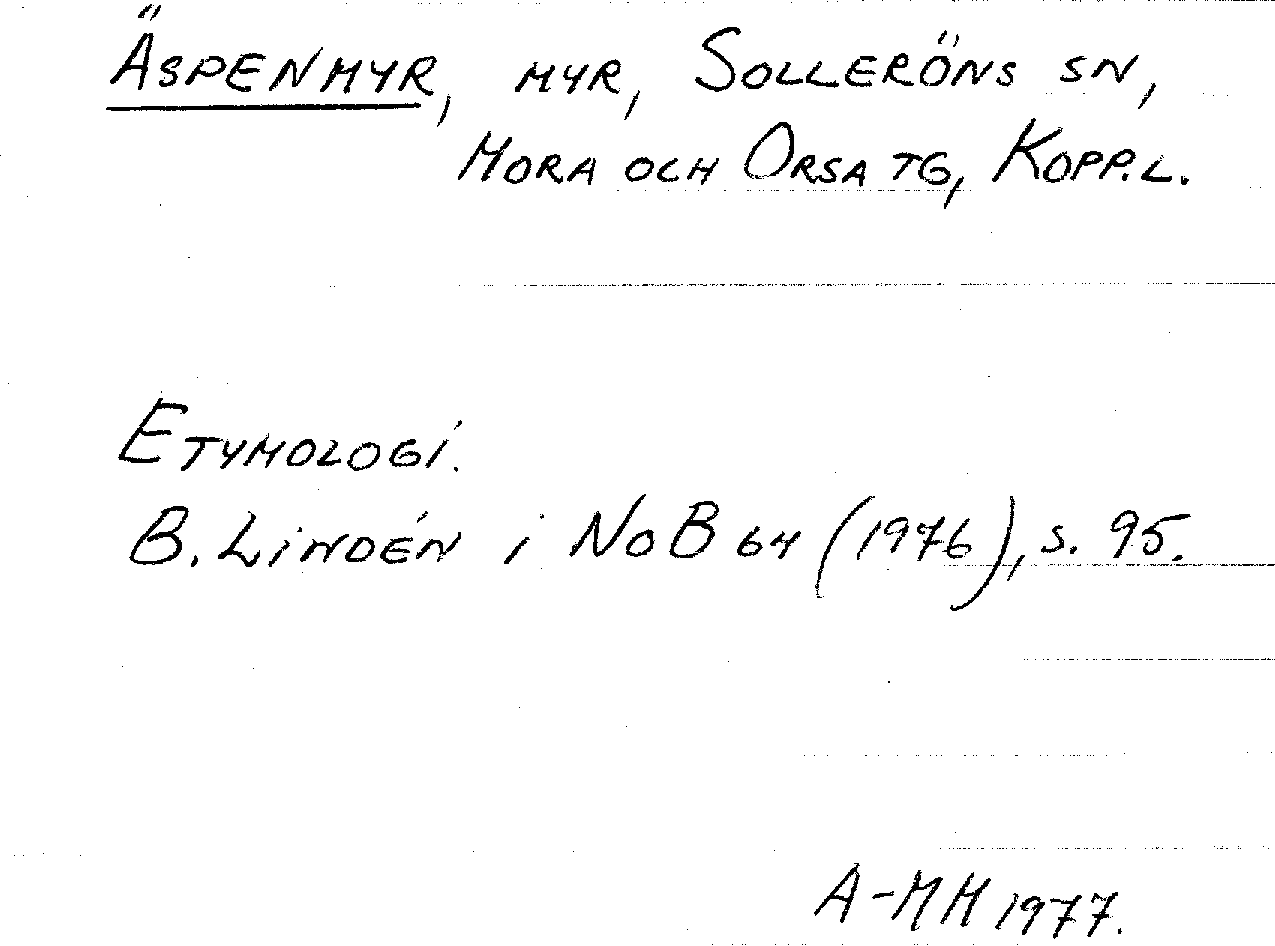 ÄSPENMYR, MYR, SOLLERÖNS SN,
MORA OCH ORSA TG, KOPP.L.
ETYMOLOGI.
B. LINDÉN i NoB 64 (1976), s. 95.
A-MH 1977.